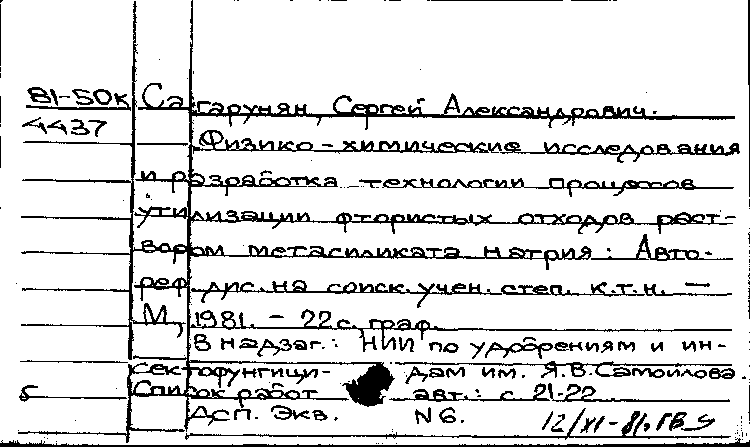 81-50к Сагарунян, Сергей Александрович.
4437
Физико-химические исследования
и разработка технологии процессов
утилизации фтористых отходов раст-
вором метасиликата натрия: Авто-
реф. дис. на соиск. учен. степ. к.т.н. —
М, 1981. - 22 с. граф.
В надзаг.: НИИ по удобрениям и ин-
сектофунгици- дам им. Я.В.Самойлова.
б Список работ авт.: с 21-22
Дсп. Экз. N6. 12/XI-81.